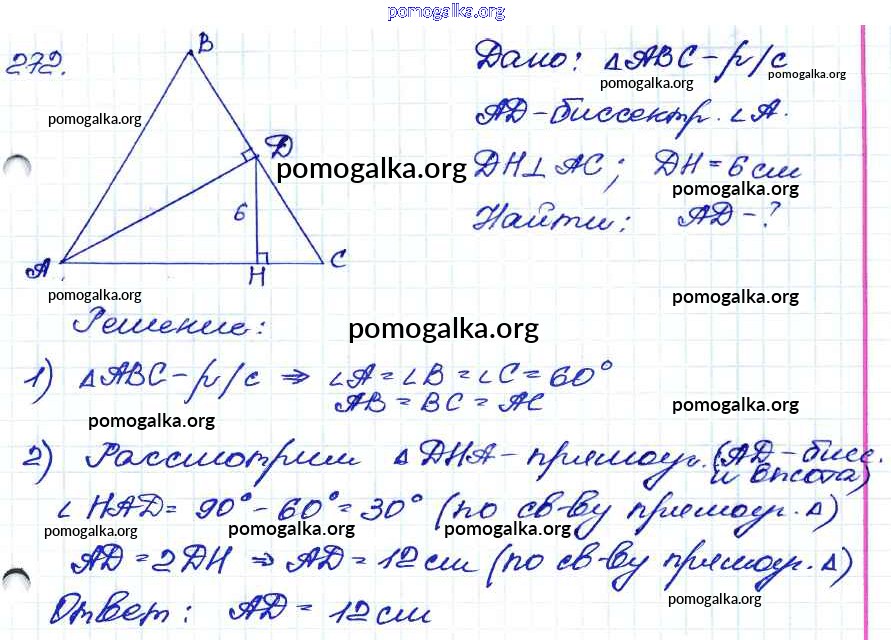 pomogalka.org
272.
B
Дано: △ABC – р/с
pomogalka.org
pomogalka.org
pomogalka.org
AD – биссектр. ∠A.
D
pomogalka.org
DH ⊥ AC; DH = 6 см
pomogalka.org
6
Найти: AD – ?
A
H
C
pomogalka.org
pomogalka.org
Решение:
pomogalka.org
1) △ABC – р/с ⇒ ∠A = ∠B = ∠C = 60°
AB = BC = AC
pomogalka.org
pomogalka.org
2) Рассмотрим △DHA – прямоуг. (AD – бисс. и высота)
∠HAD = 90° – 60° = 30° (по св-ву прямоуг. △)
pomogalka.org
pomogalka.org
pomogalka.org
AD = 2DH ⇒ AD = 12 см (по св-ву прямоуг. △)
pomogalka.org
Ответ: AD = 12 см